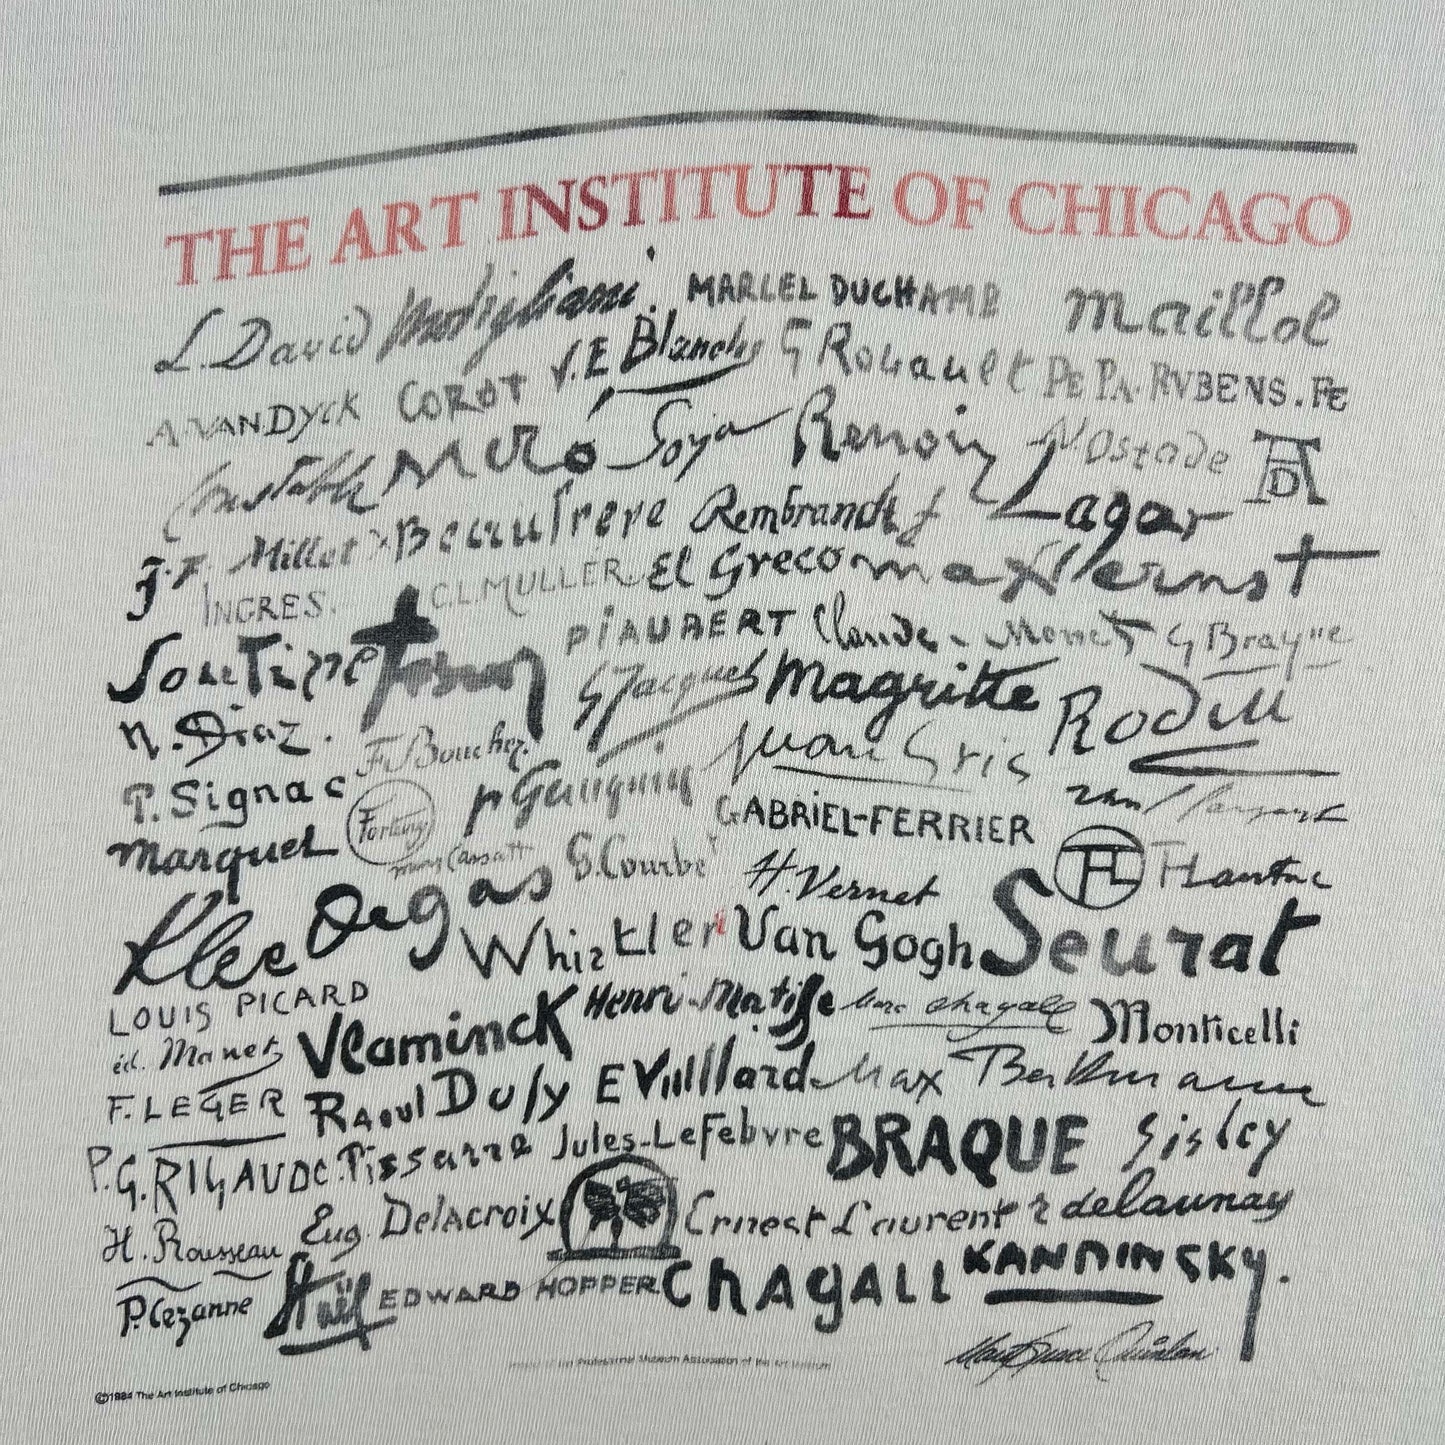 THE ART INSTITUTE OF CHICAGO
L. David Modigliani MARCEL DUCHAMP Maillol
A. VAN DYCK COROT V.E Blanche G Rouault PE PA. RVBENS. FE
Constable Miró Goya Renoir Ostade AD
J.F. Millet Beaufrere Rembrandt f Lagar
INGRES. C.L. MULLER El Greco max ernst
Soutine PIAUBERT Claude Monet G Braque
N. Diaz. G Jacquet Magritte Rodin
P. Signac F. Boucher. Juan Gris
marquet Fortuny p Gauguin GABRIEL-FERRIER
mary Cassatt G. Courbet H. Vernet HTL
Klee Degas Whistler Van Gogh Seurat
LOUIS PICARD Henri. Matisse Marc chagall Monticelli
éd. Manet Vlaminck
F. LEGER Raoul Dufy E Vuillard Max Beckmann
P. G. RIGAUD C. Pissarro Jules-Lefebvre BRAQUE Sisley
H. Rousseau Eug. Delacroix Ernest Laurent r delaunay
P. Cezanne Staël EDWARD HOPPER CHAGALL KANDINSKY.
Professional Museum Association of the Art Museum
Mary Grace Quinlan
©1984 The Art Institute of Chicago